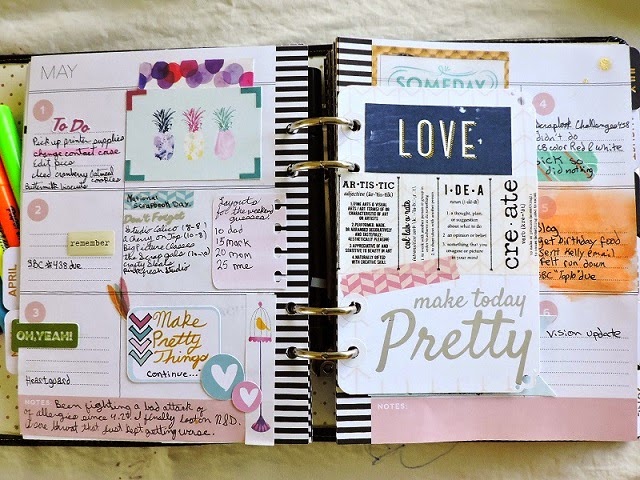 MAY
1
To Do
Pick up printer supplies
change contact case
Edit pics
Need cranberry oatmeal
cookies
Buttermilk biscuits
2
remember
SBC #438 due
National
Scrapbook Day
Don't Forget
Studio Calico
2 Cherry on Top (10-8)
Big Picture Classes
the scrap gals
Crate
Pinkfresh Studio
Layouts
for the weekend
10 dad
15 mark
20 mom
25 me
APRIL
3
OH, YEAH!
Heartguard
Make
Pretty
Things
Continue...
NOTES:
Been fighting a bad attack of
of allergies since 4.29. I finally
sore throat that just kept getting worse.
SOMEDAY
LOVE
AR·TIS·TIC
adjective (är-tis-tik)
1. LIVING ARTS & VISUAL
ARTS / ART TERMS OF OR
CHARACTERISTIC OF ART
OR ARTISTS
2. PERFORMED, MADE,
OR ARRANGED DELICATELY
AND DECORATIVELY;
AESTHETICALLY PLEASING
3. APPRECIATIVE OF OR
SENSITIVE TO BEAUTY IN ART
4. NATURALLY GIFTED
WITH CREATIVE SKILL
I·DE·A
noun (ī-dē-ə)
1. a thought, plan,
or suggestion
about what to do
2. an opinion or belief
3. something that you
imagine or picture
in your mind
cre·ate
make today
Pretty
4
Scrapbook Challenges
didn't do
Red & White
Sick so
did nothing
Blog
get birthday food
sent Kelly Email
felt run down
SBC "Topic" due
6
Vision update
NOTES: